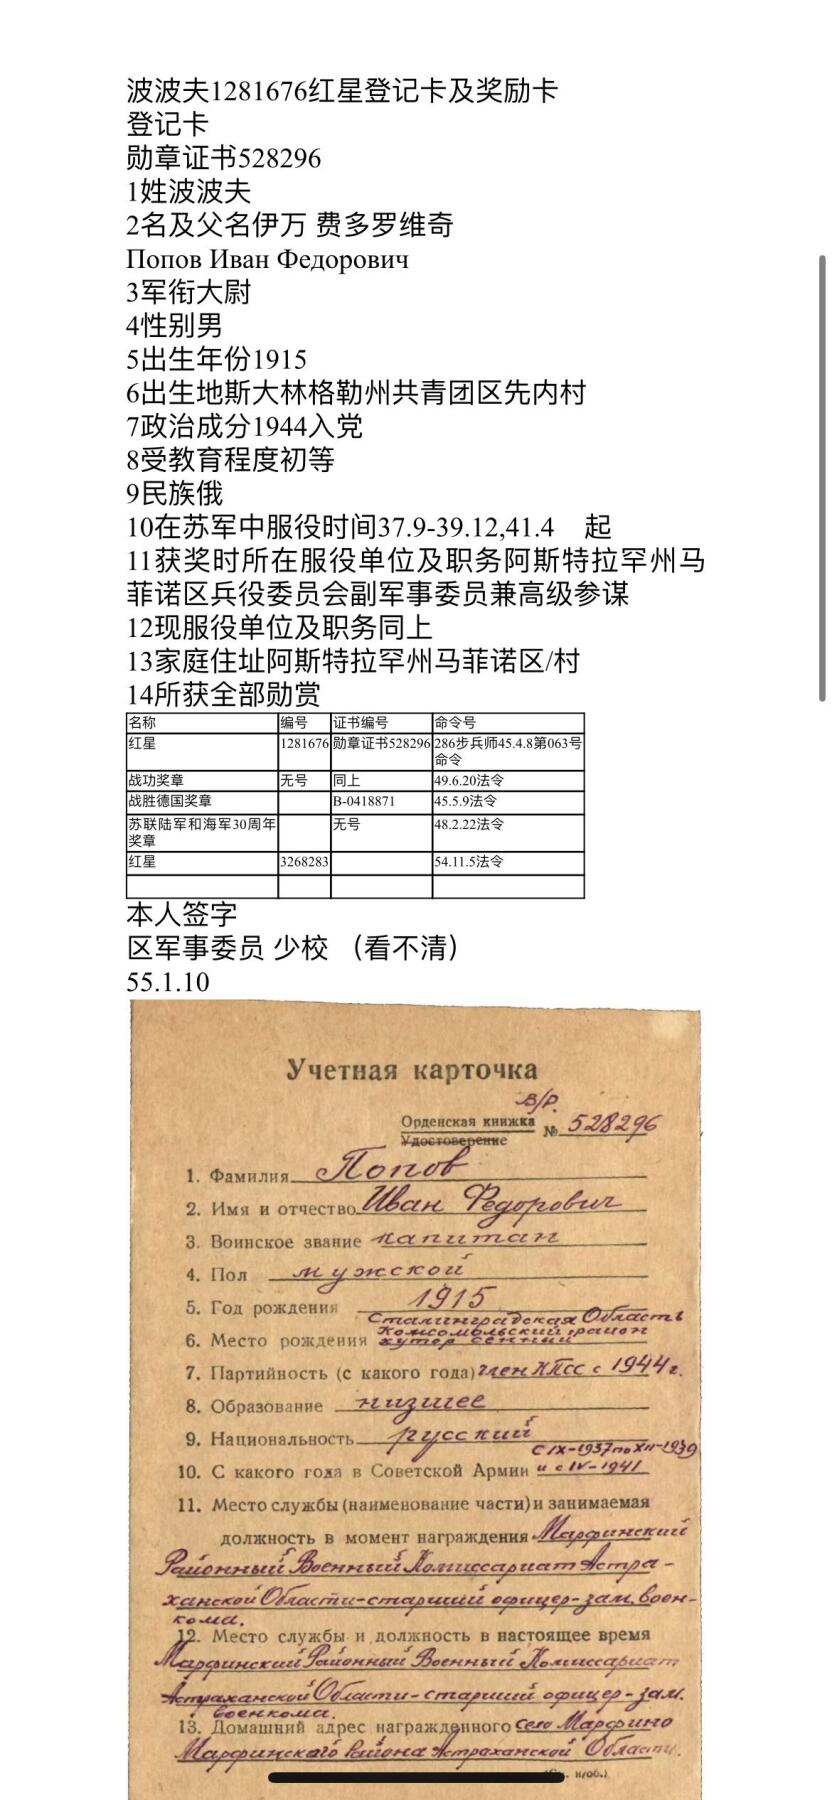 波波夫1281676红星登记卡及奖励卡
登记卡
勋章证书528296
1姓波波夫
2名及父名伊万 费多罗维奇
Попов Иван Федорович
3军衔大尉
4性别男
5出生年份1915
6出生地斯大林格勒州共青团区先内村
7政治成分1944入党
8受教育程度初等
9民族俄
10在苏军中服役时间37.9-39.12,41.4 起
11获奖时所在服役单位及职务阿斯特拉罕州马
菲诺区兵役委员会副军事委员兼高级参谋
12现服役单位及职务同上
13家庭住址阿斯特拉罕州马菲诺区/村
14所获全部勋赏
名称 编号 证书编号 命令号
红星 1281676 勋章证书528296 286步兵师45.4.8第063号
命令
战功奖章 无号 同上 49.6.20法令
战胜德国奖章 В-0418871 45.5.9法令
苏联陆军和海军30周年 无号 48.2.22法令
奖章
红星 3268283 54.11.5法令
本人签字
区军事委员 少校 （看不清）
55.1.10
Учетная карточка
в/р.
Орденская книжка № 528296
Удостоверение
1. Фамилия Попов
2. Имя и отчество Иван Федорович
3. Воинское звание капитан
4. Пол мужской
5. Год рождения 1915
Сталинградская Область
Комсомольский район
6. Место рождения хутор Сенный
7. Партийность (с какого года) член КПСС с 1944 г.
8. Образование низшее
9. Национальность русский
с IX-1937 по XII-1939
10. С какого года в Советской Армии и с IV-1941
11. Место службы (наименование части) и занимаемая
должность в момент награждения Марфинский
Районный Военный Комиссариат Астра-
ханской Области-старший офицер-зам. воен-
кома.
12. Место службы и должность в настоящее время
Марфинский Районный Военный Комиссариат
Астраханской Области-старший офицер-зам.
военкома.
13. Домашний адрес награжденного село Марфино
Марфинского Района Астраханской Области.
н/об.)